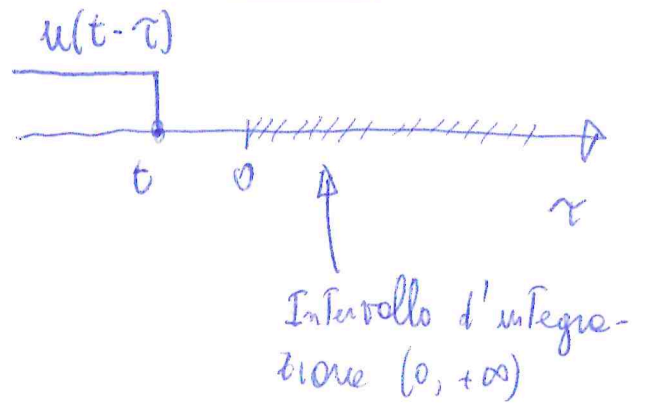 u(t-τ)
t 0
τ
Intervallo d'integra-
zione (0, +∞)